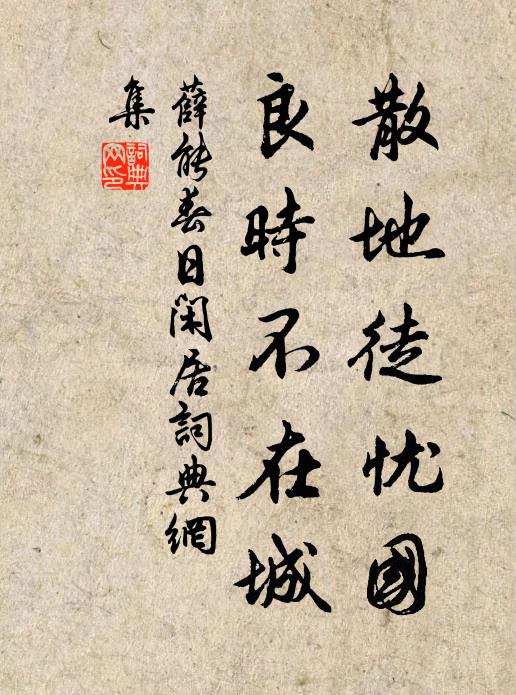 散地徒忧國
良時不在城
薛能春日閑居詞典網
集
詞典网印